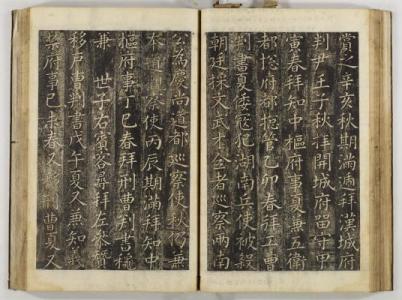 賞之辛亥秋期滿遞拜漢城府
判尹壬子秋拜開城府留守甲
寅春拜知中樞府事夏兼五衛
都摠府都摠管乙卯春拜工曹
判書夏倭寇犯湖南兵使被殺
朝廷採文武才全者巡察兩南
公爲慶尚道都巡察使秋仍兼
本道察使丙辰期滿拜知中
樞府事丁巳春拜刑曹判書秋
兼 世子右賓客尋拜左參贊
移戶曹判書戊午夏又兼知義
禁府事己未春又曹夏又